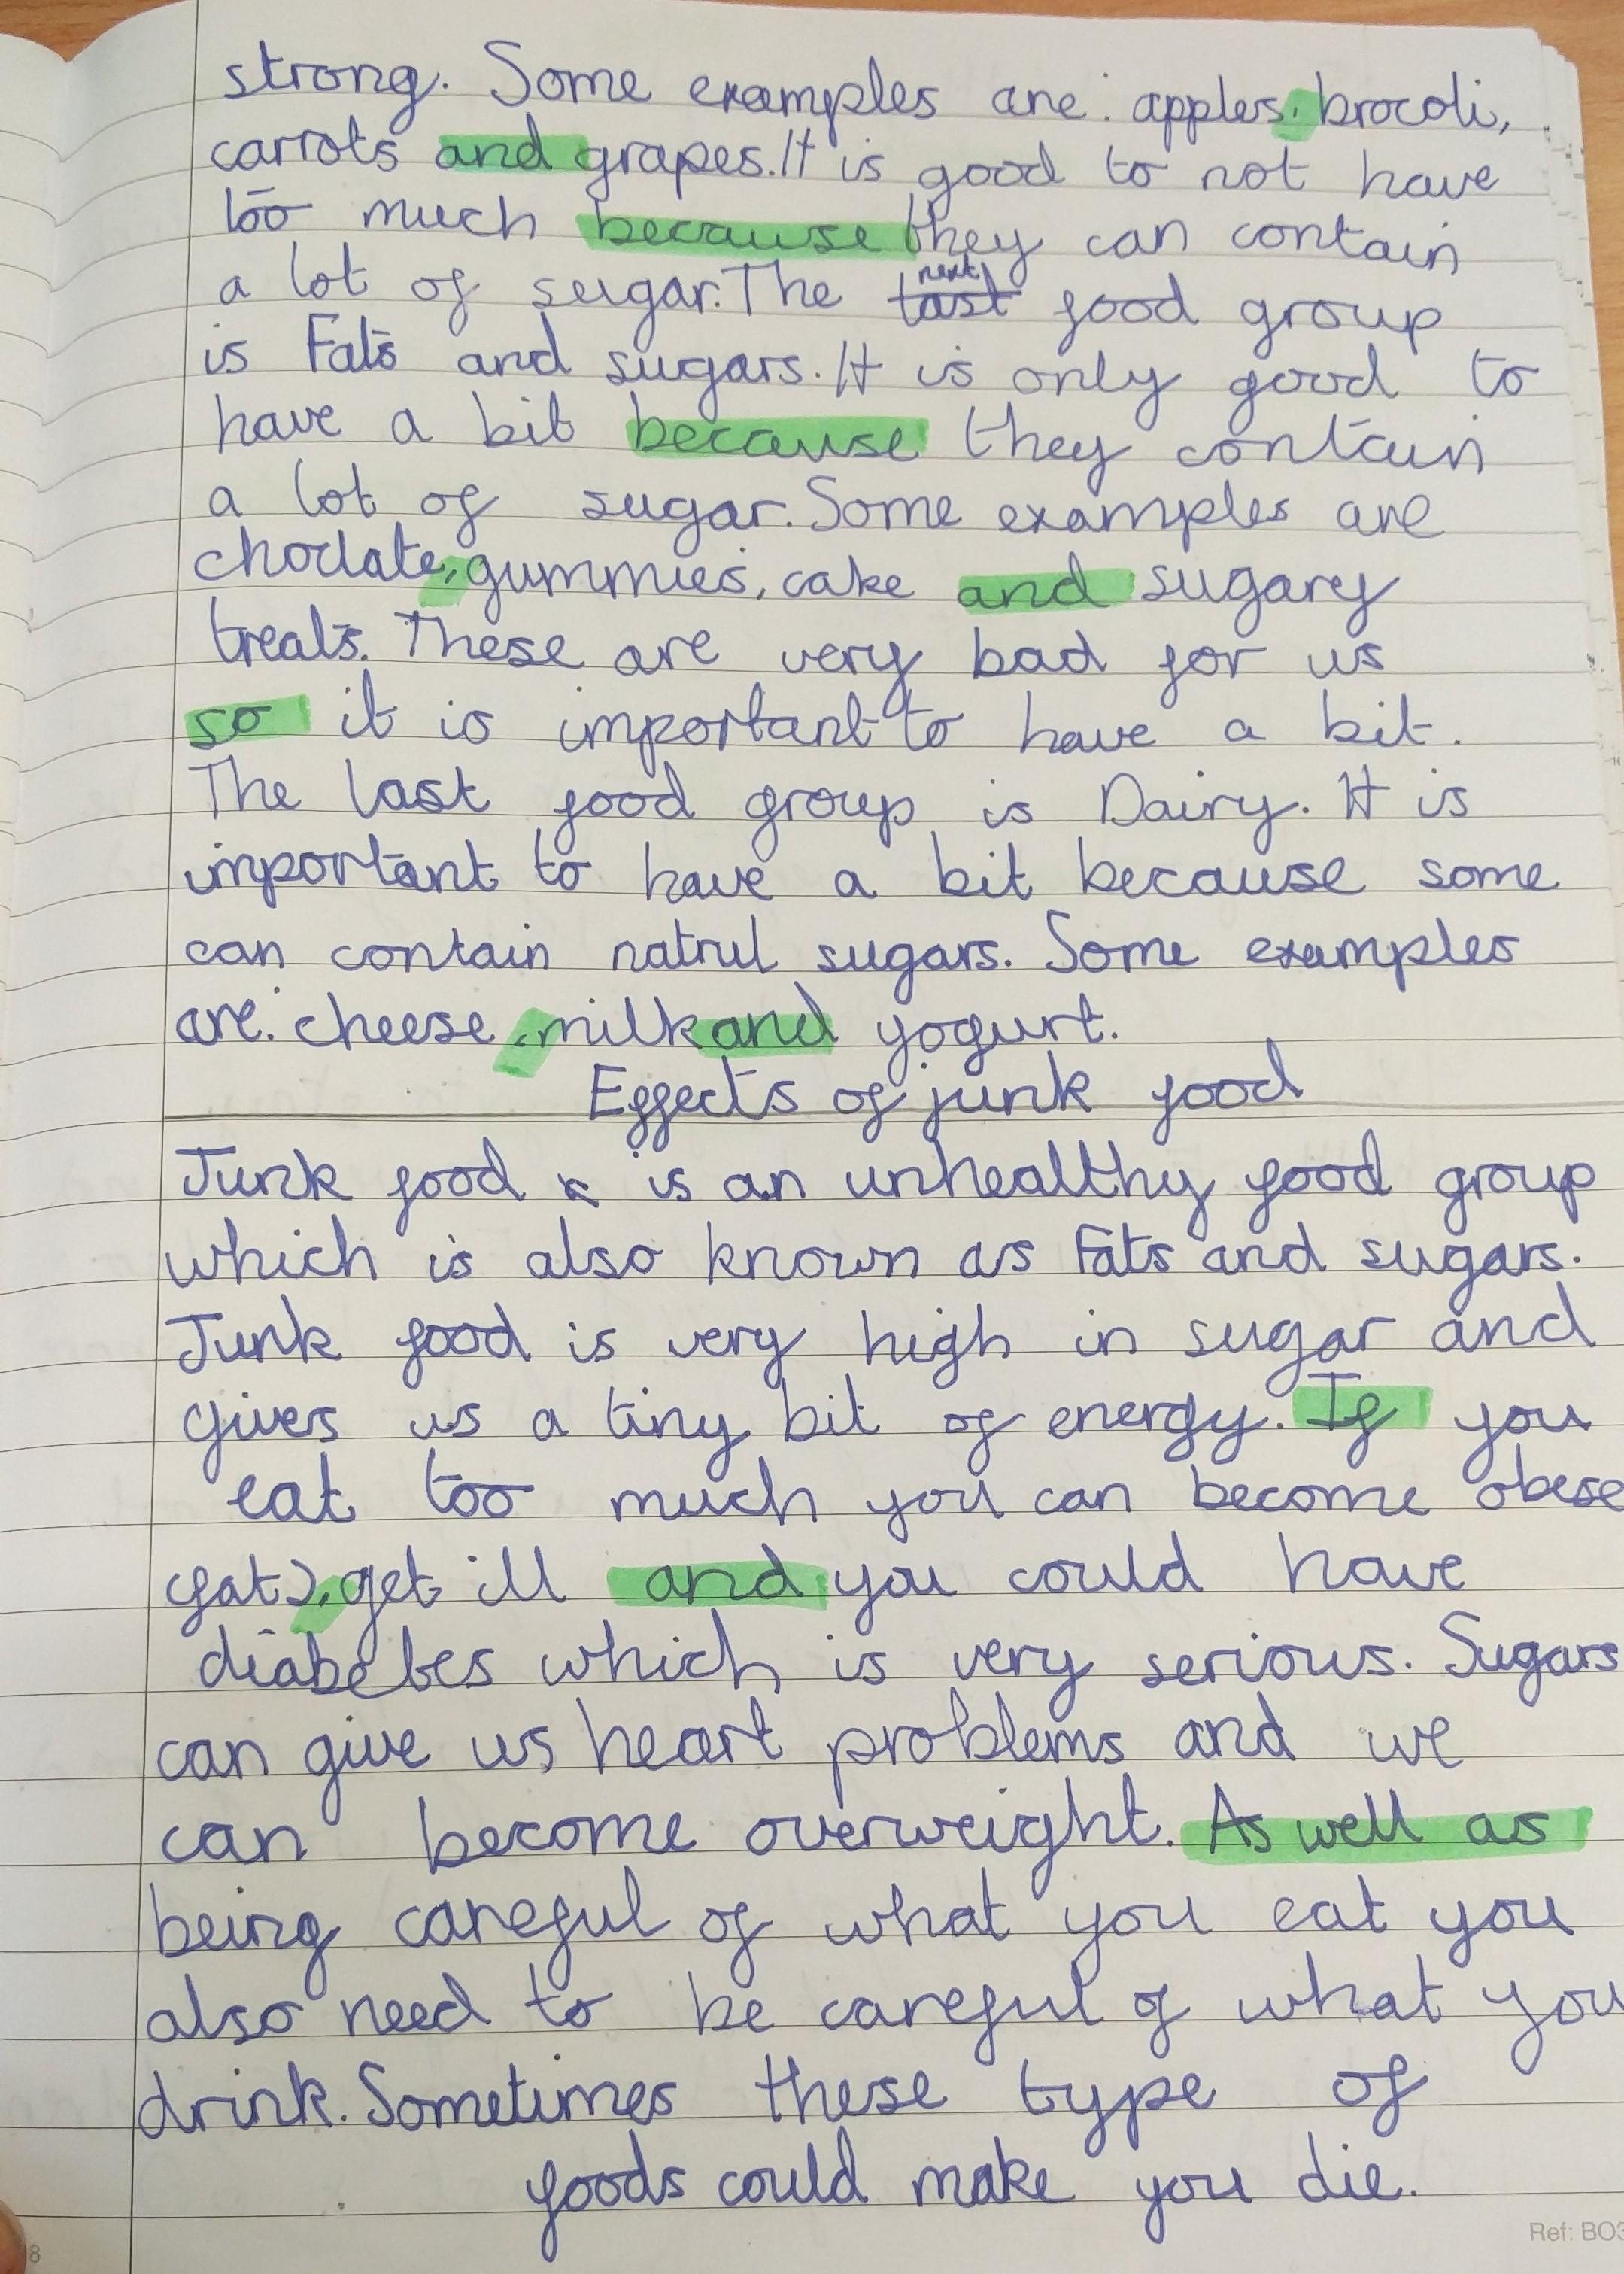 strong. Some examples are: apples, brocoli,
carrots and grapes. It is good to not have
too much because they can contain
a lot of sugar. The next food group
is Fats and sugars. It is only good to
have a bit because they contain
a lot of sugar. Some examples are
choclate, gummies, cake and sugary
treats. These are very bad for us
so it is important to have a bit.
The last food group is Dairy. It is
important to have a bit because some
can contain natrul sugars. Some examples
are: cheese, milk and yogurt.
Effects of junk food
Junk food is an unhealthy food group
which is also known as Fats and sugars.
Junk food is very high in sugar and
gives us a tiny bit of energy. If you
eat too much you can become obese
(fat), get ill and you could have
diabetes which is very serious. Sugars
can give us heart problems and we
can become overweight. As well as
being careful of what you eat you
also need to be careful of what you
drink. Sometimes these type of
foods could make you die.
Ref: BO3